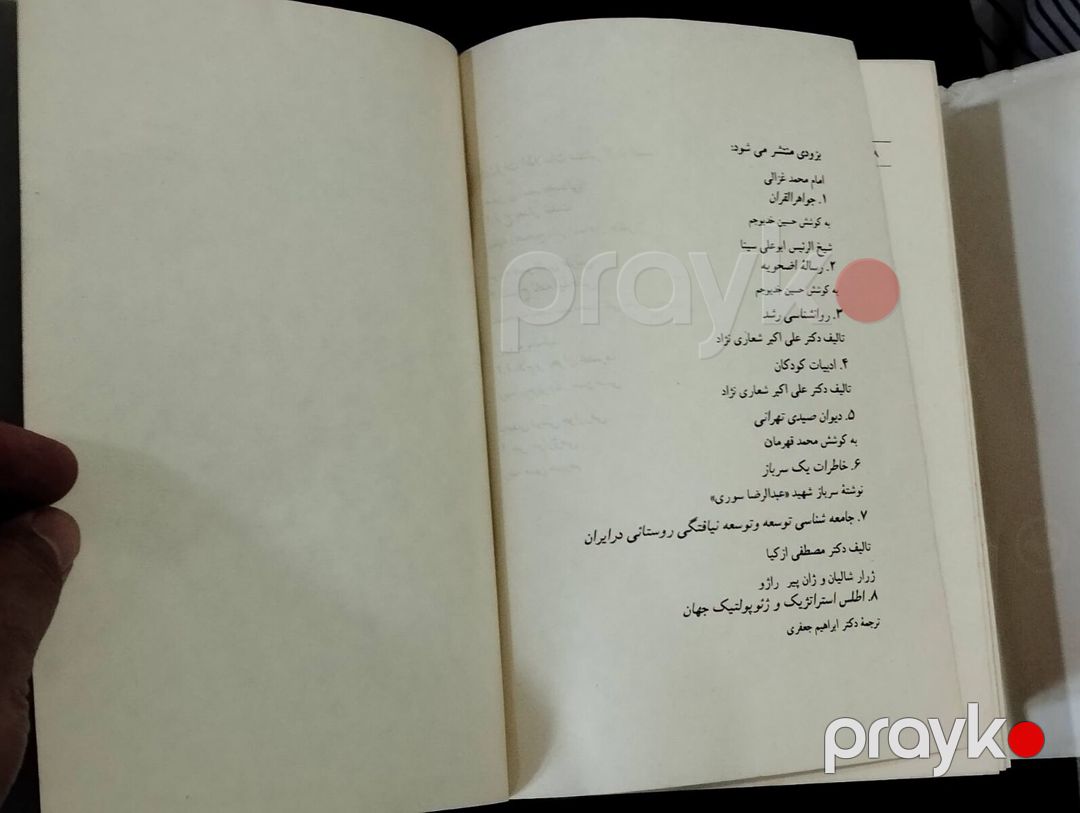 بزودی منتشر می شود:
امام محمد غزالی
۱. جواهرالقران
به کوشش حسین خدیوجم
شیخ الرئیس ابوعلی سینا
۲. رسالهٔ اضحویه
به کوشش حسین خدیوجم
۳. روانشناسی رشد
تالیف دکتر علی اکبر شعاری نژاد
۴. ادبیات کودکان
تالیف دکتر علی اکبر شعاری نژاد
۵. دیوان صیدی تهرانی
به کوشش محمد قهرمان
۶. خاطرات یک سرباز
نوشتهٔ سرباز شهید «عبدالرضا سوری»
۷. جامعه شناسی توسعه وتوسعه نیافتگی روستائی درایران
تالیف دکتر مصطفی ازکیا
ژرار شالیان و ژان پیر راژو
۸. اطلس استراتژیک و ژئوپولتیک جهان
ترجمهٔ دکتر ابراهیم جعفری
۸
prayk
prayk